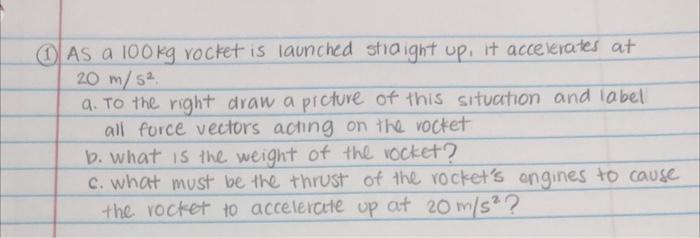 ① As a 100kg rocket is launched straight up, it accelerates at
20 m/s².
a. To the right draw a picture of this situation and label
all force vectors acting on the rocket
b. what is the weight of the rocket?
c. what must be the thrust of the rocket's engines to cause
the rocket to accelerate up at 20 m/s²?